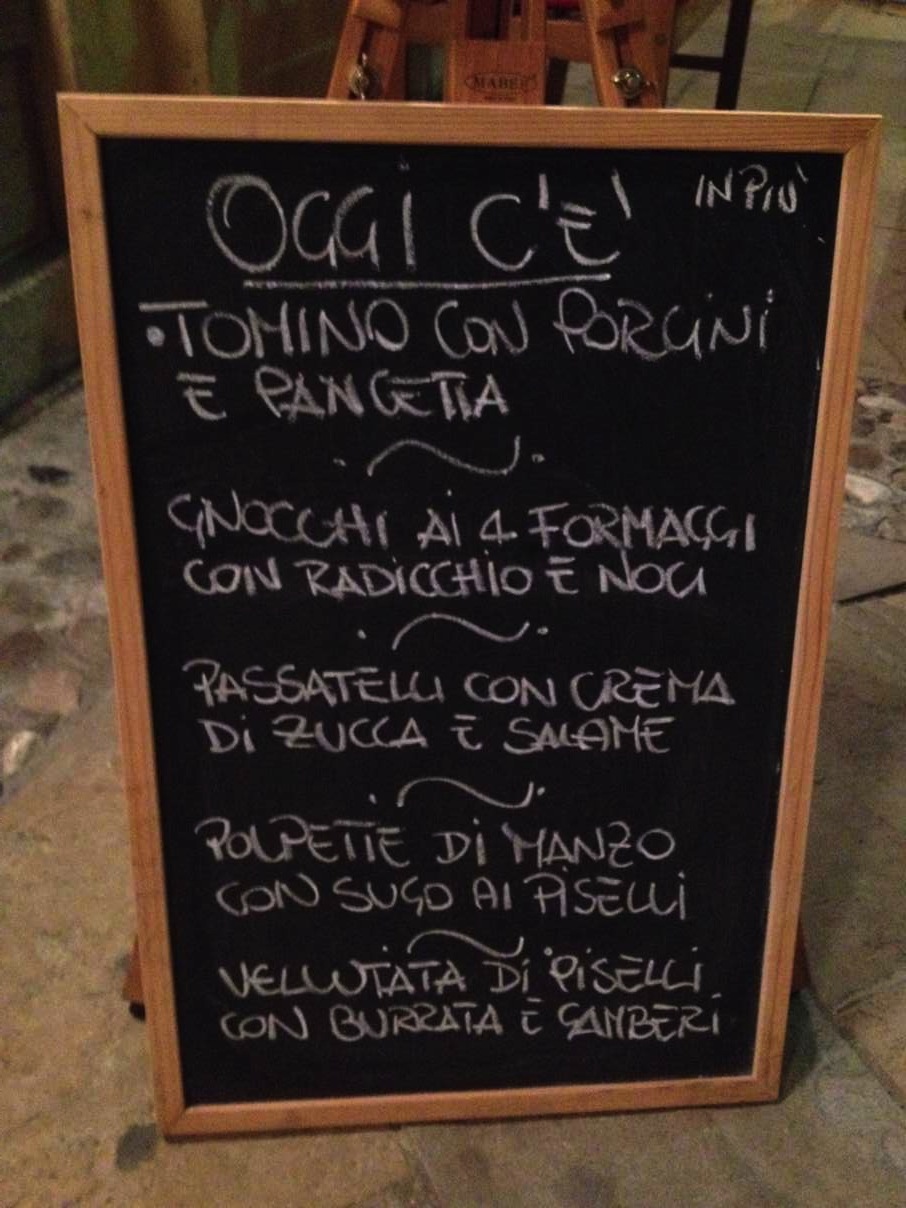 MABEF
OGGI C'È IN PIÙ
• TOMINO CON PORCINI
E PANCETTA
GNOCCHI AI 4 FORMAGGI
CON RADICCHIO E NOCI
PASSATELLI CON CREMA
DI ZUCCA E SALAME
POLPETTE DI MANZO
CON SUGO AI PISELLI
VELLUTATA DI PISELLI
CON BURRATA E GAMBERI